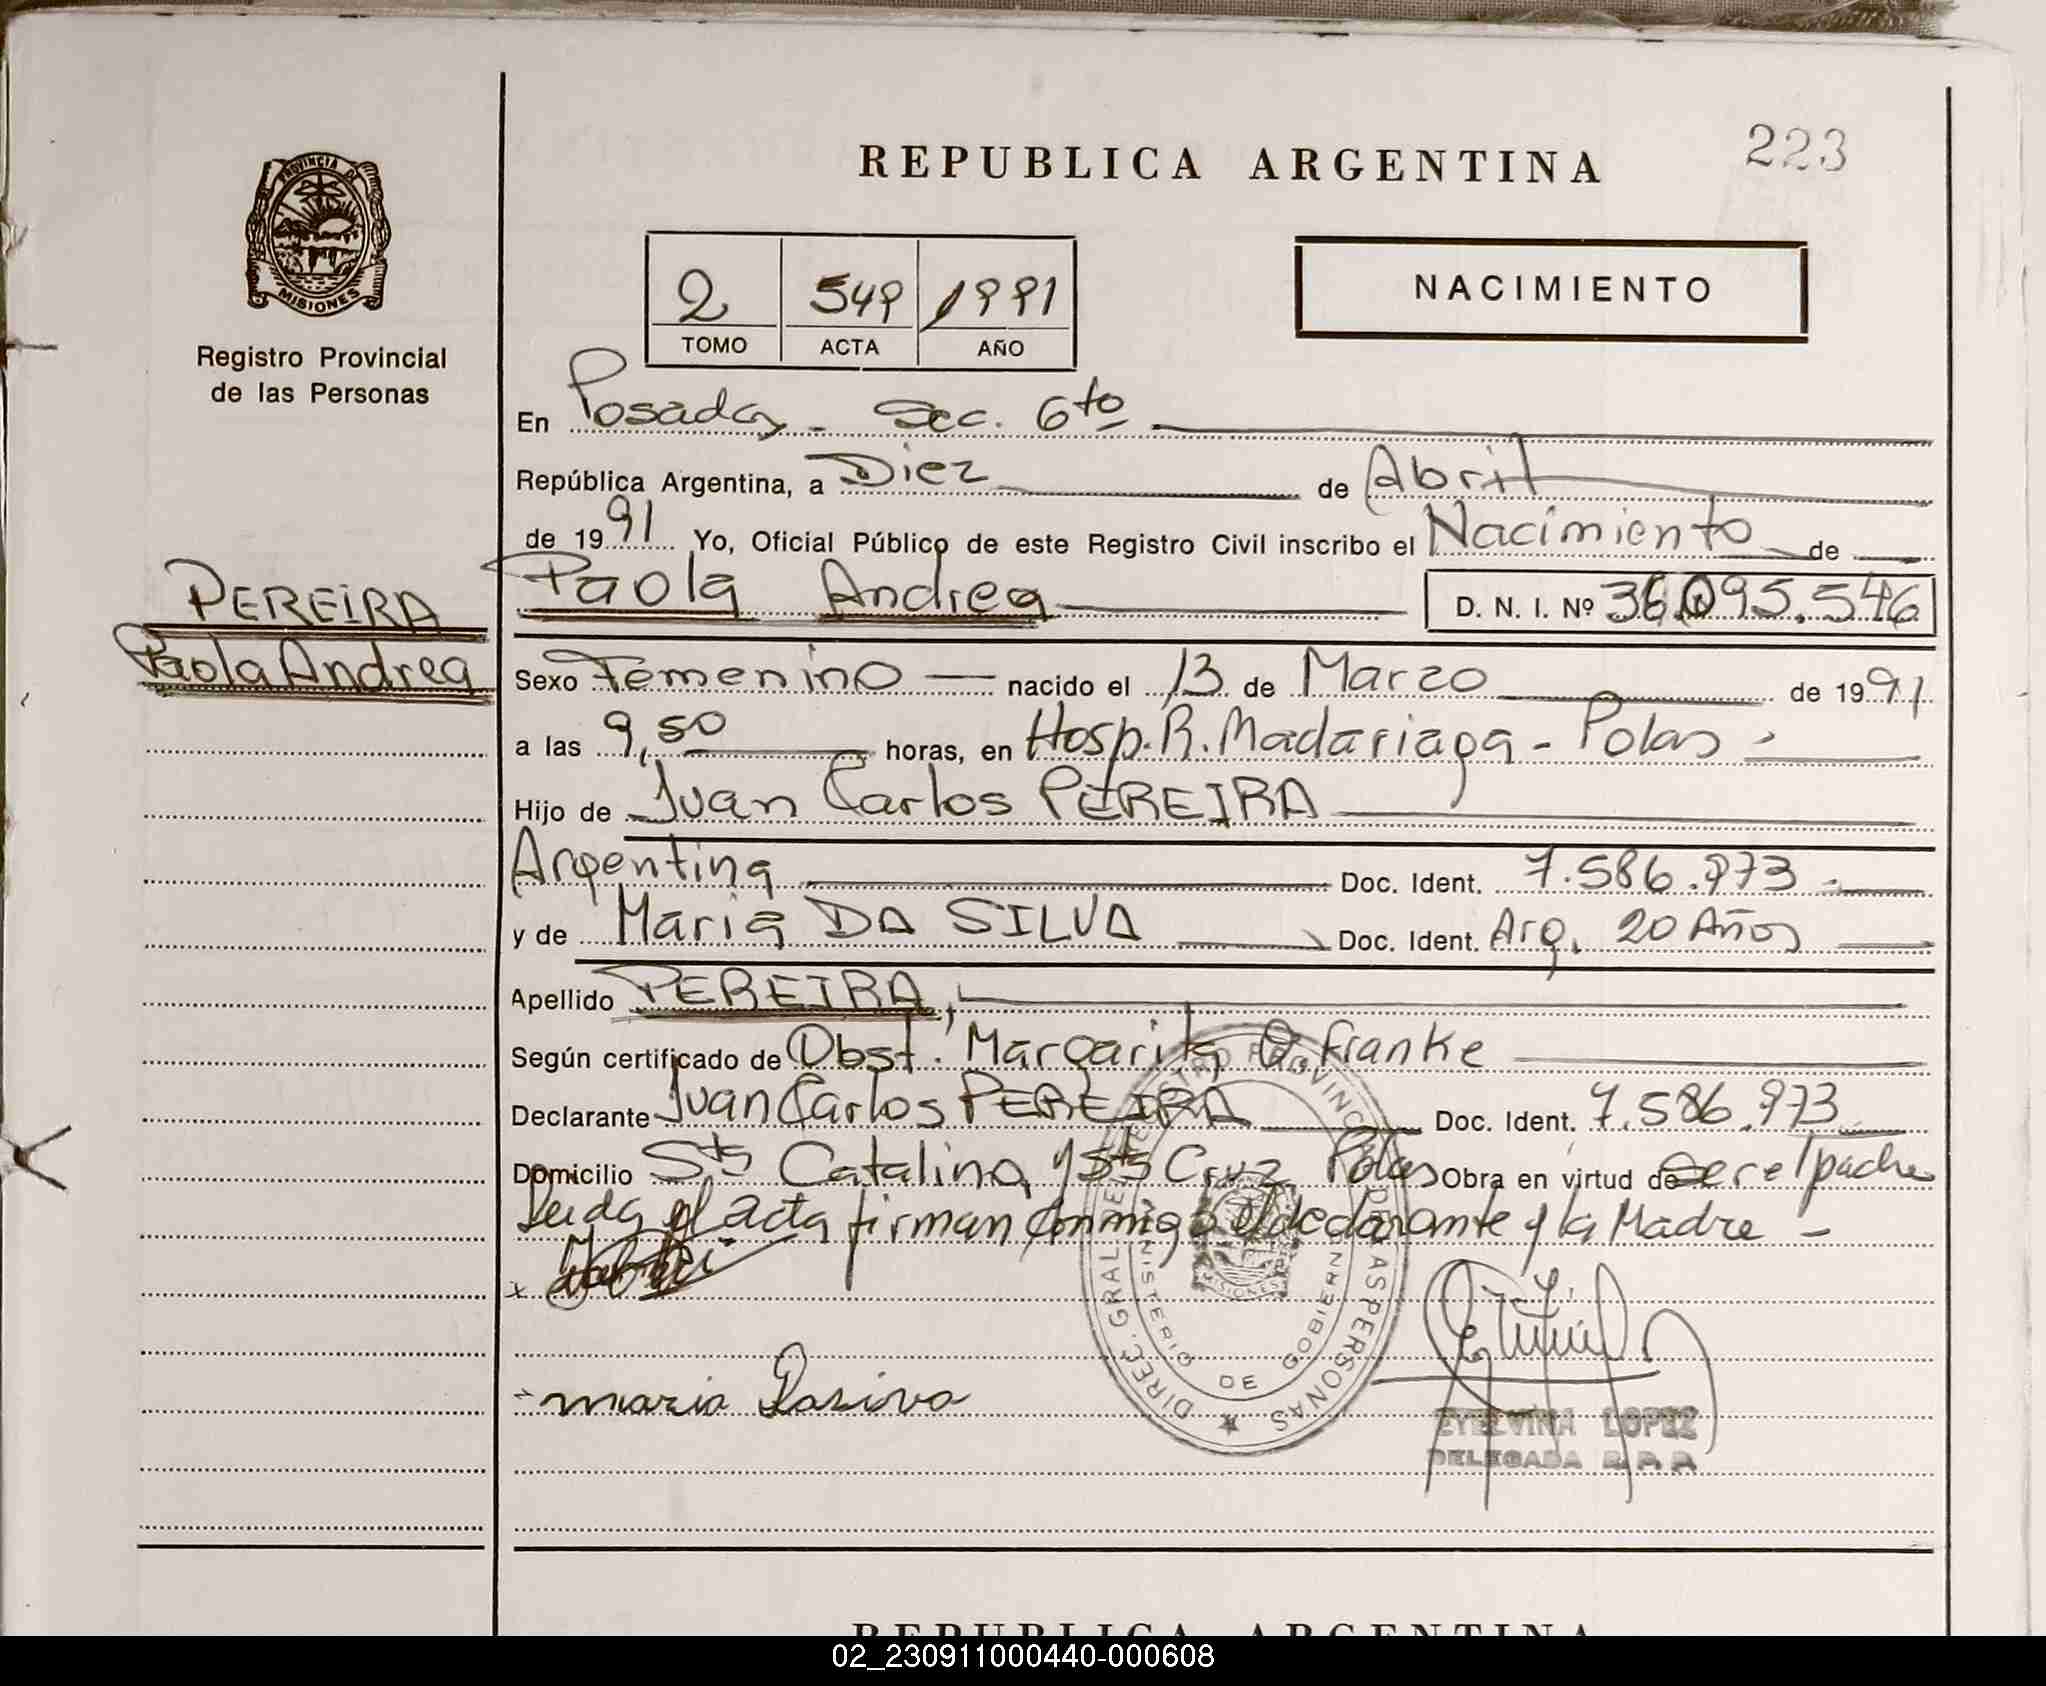 REPUBLICA ARGENTINA
223
PROVINCIA DE
MISIONES
Registro Provincial
de las Personas
2 549 1991
TOMO ACTA AÑO
NACIMIENTO
En Posadas - Sec. 6to
República Argentina, a Diez de Abril
de 1991 Yo, Oficial Público de este Registro Civil inscribo el Nacimiento de
PEREIRA
Paola Andrea
Paola Andrea D. N. I. Nº 36.095.546
Sexo Femenino nacido el 13 de Marzo de 1991
a las 9,50 horas, en Hosp. R. Madariaga - Pdas -
Hijo de Juan Carlos PEREIRA
Argentina Doc. Ident. 7.586.973 -
y de Maria DA SILVA Doc. Ident. Arg. 20 Años
Apellido PEREIRA,
Según certificado de Obst. Margarita Franke
Declarante Juan Carlos PEREIRA Doc. Ident. 7.586.973
Domicilio Sta Catalina y Sta Cruz Pdas Obra en virtud de ser el padre
Leida el acta firman conmigo el declarante y la Madre -
x
maria Dasiva
DIREC. GRAL. DEL REGISTRO PROVINCIAL DE LAS PERSONAS
MINISTERIO DE GOBIERNO
MISIONES
LOPEZ
DELEGADA R.P.P.
REPUBLICA ARGENTINA
02_230911000440-000608